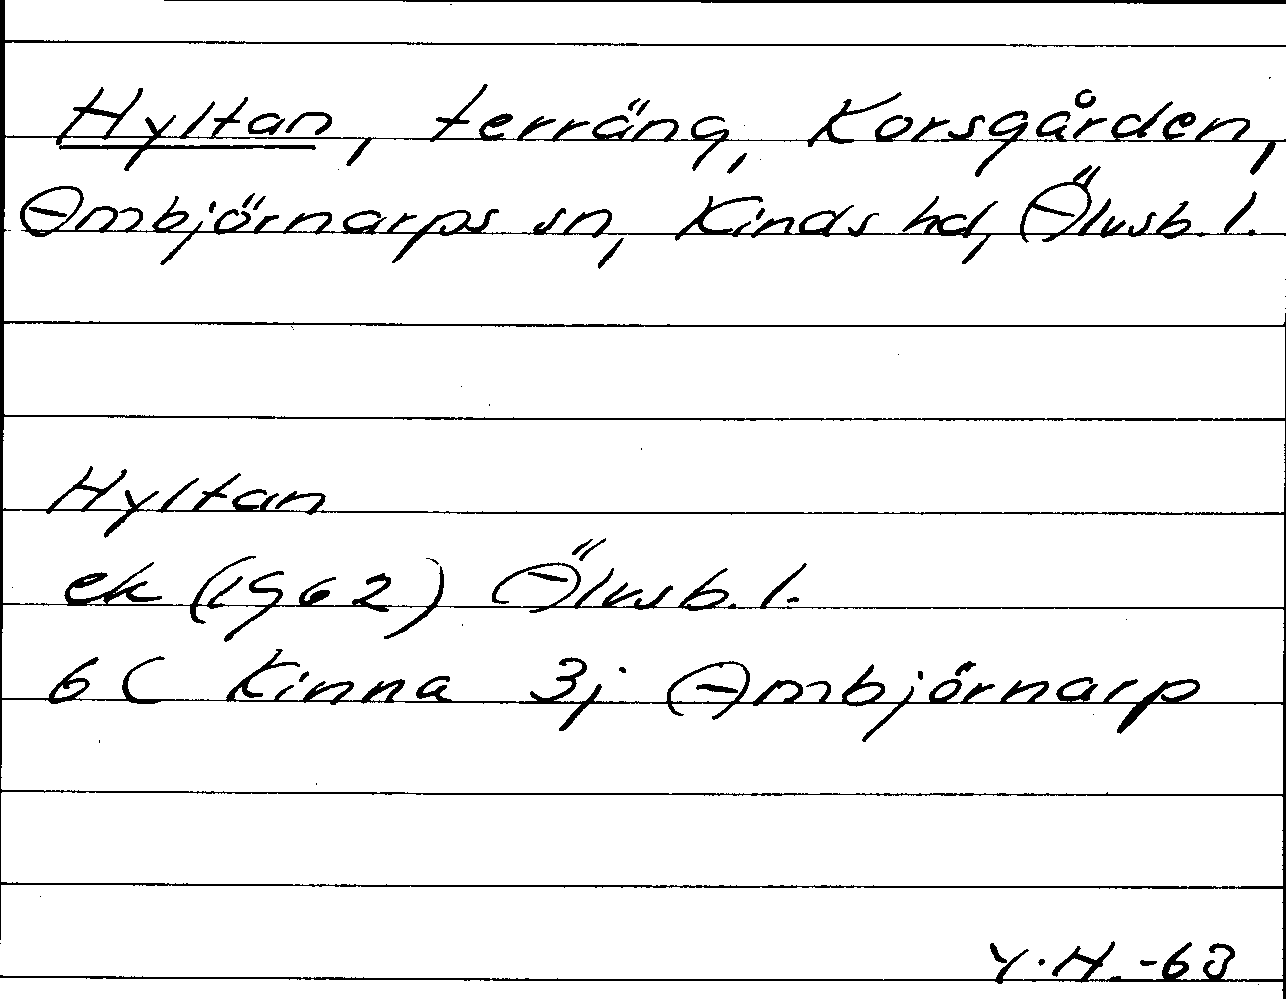 Hyltan, terräng, Korsgården,
Ambjörnarps sn, Kinds hd, Älvsb. l.
Hyltan
ek (1962) Älvsb. l.
6 C Kinna 3j Ambjörnarp
Y. H. -63